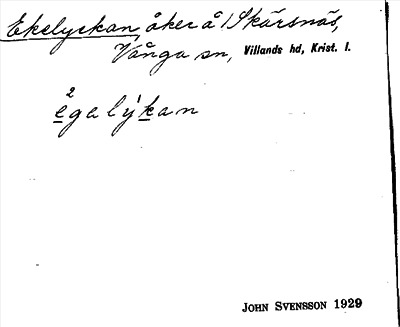 Ekelyckan, åker å 1 Skärsnäs,
Vånga sn, Villands hd, Krist. l.
2
egalýkan
JOHN SVENSSON 1929